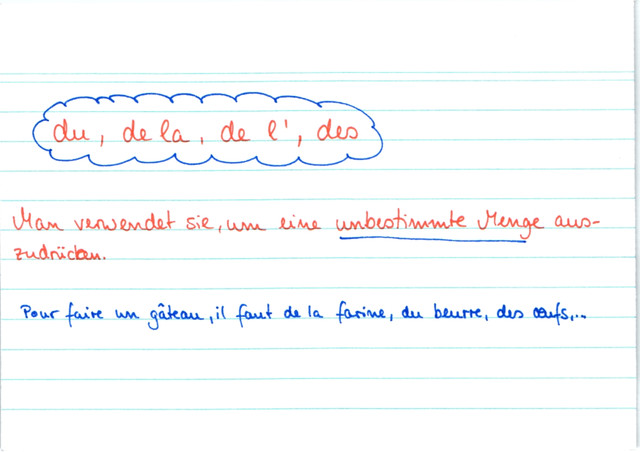 du, de la, de l', des
Man verwendet sie, um eine unbestimmte Menge aus-
zudrücken.
Pour faire un gâteau, il faut de la farine, du beurre, des œufs,...